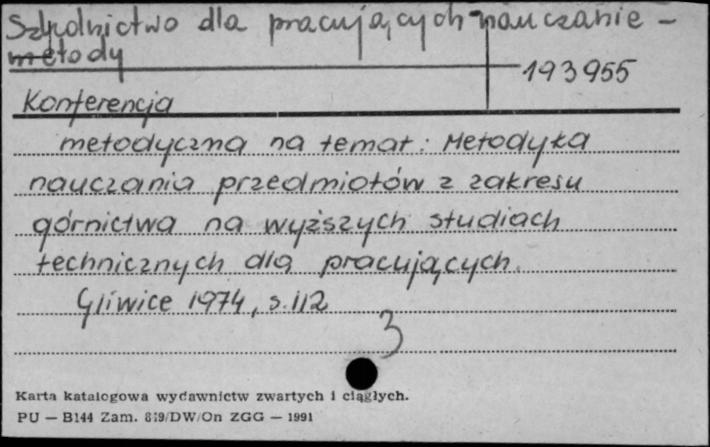 Szkolnictwo dla pracujących - nauczanie -
metody
193955
Konferencja
metodyczna na temat: Metodyka
nauczania przedmiotów z zakresu
górnictwa na wyższych studiach
technicznych dla pracujących.
Gliwice 1974, s. 112
3
Karta katalogowa wydawnictw zwartych i ciągłych.
PU — B144 Zam. 819/DW/On ZGG — 1991